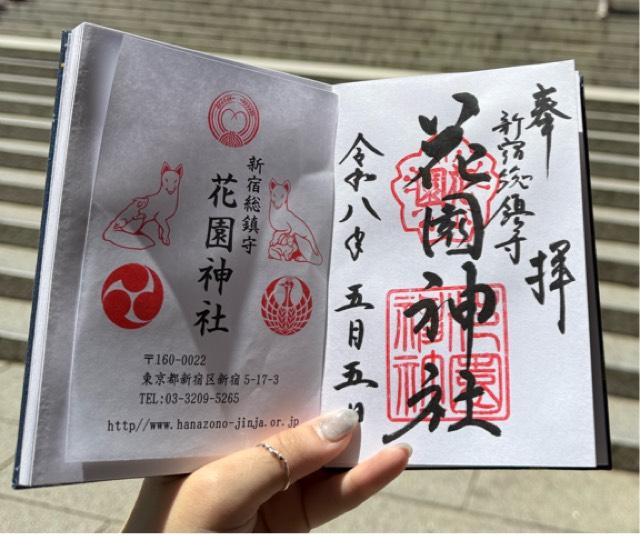 新宿総鎮守
花園神社
〒160-0022
東京都新宿区新宿5-17-3
TEL:03-3209-5265
http//www.hanazono-jinja.or.jp
奉拝
新宿総鎮守
花園神社
令和八年五月五日